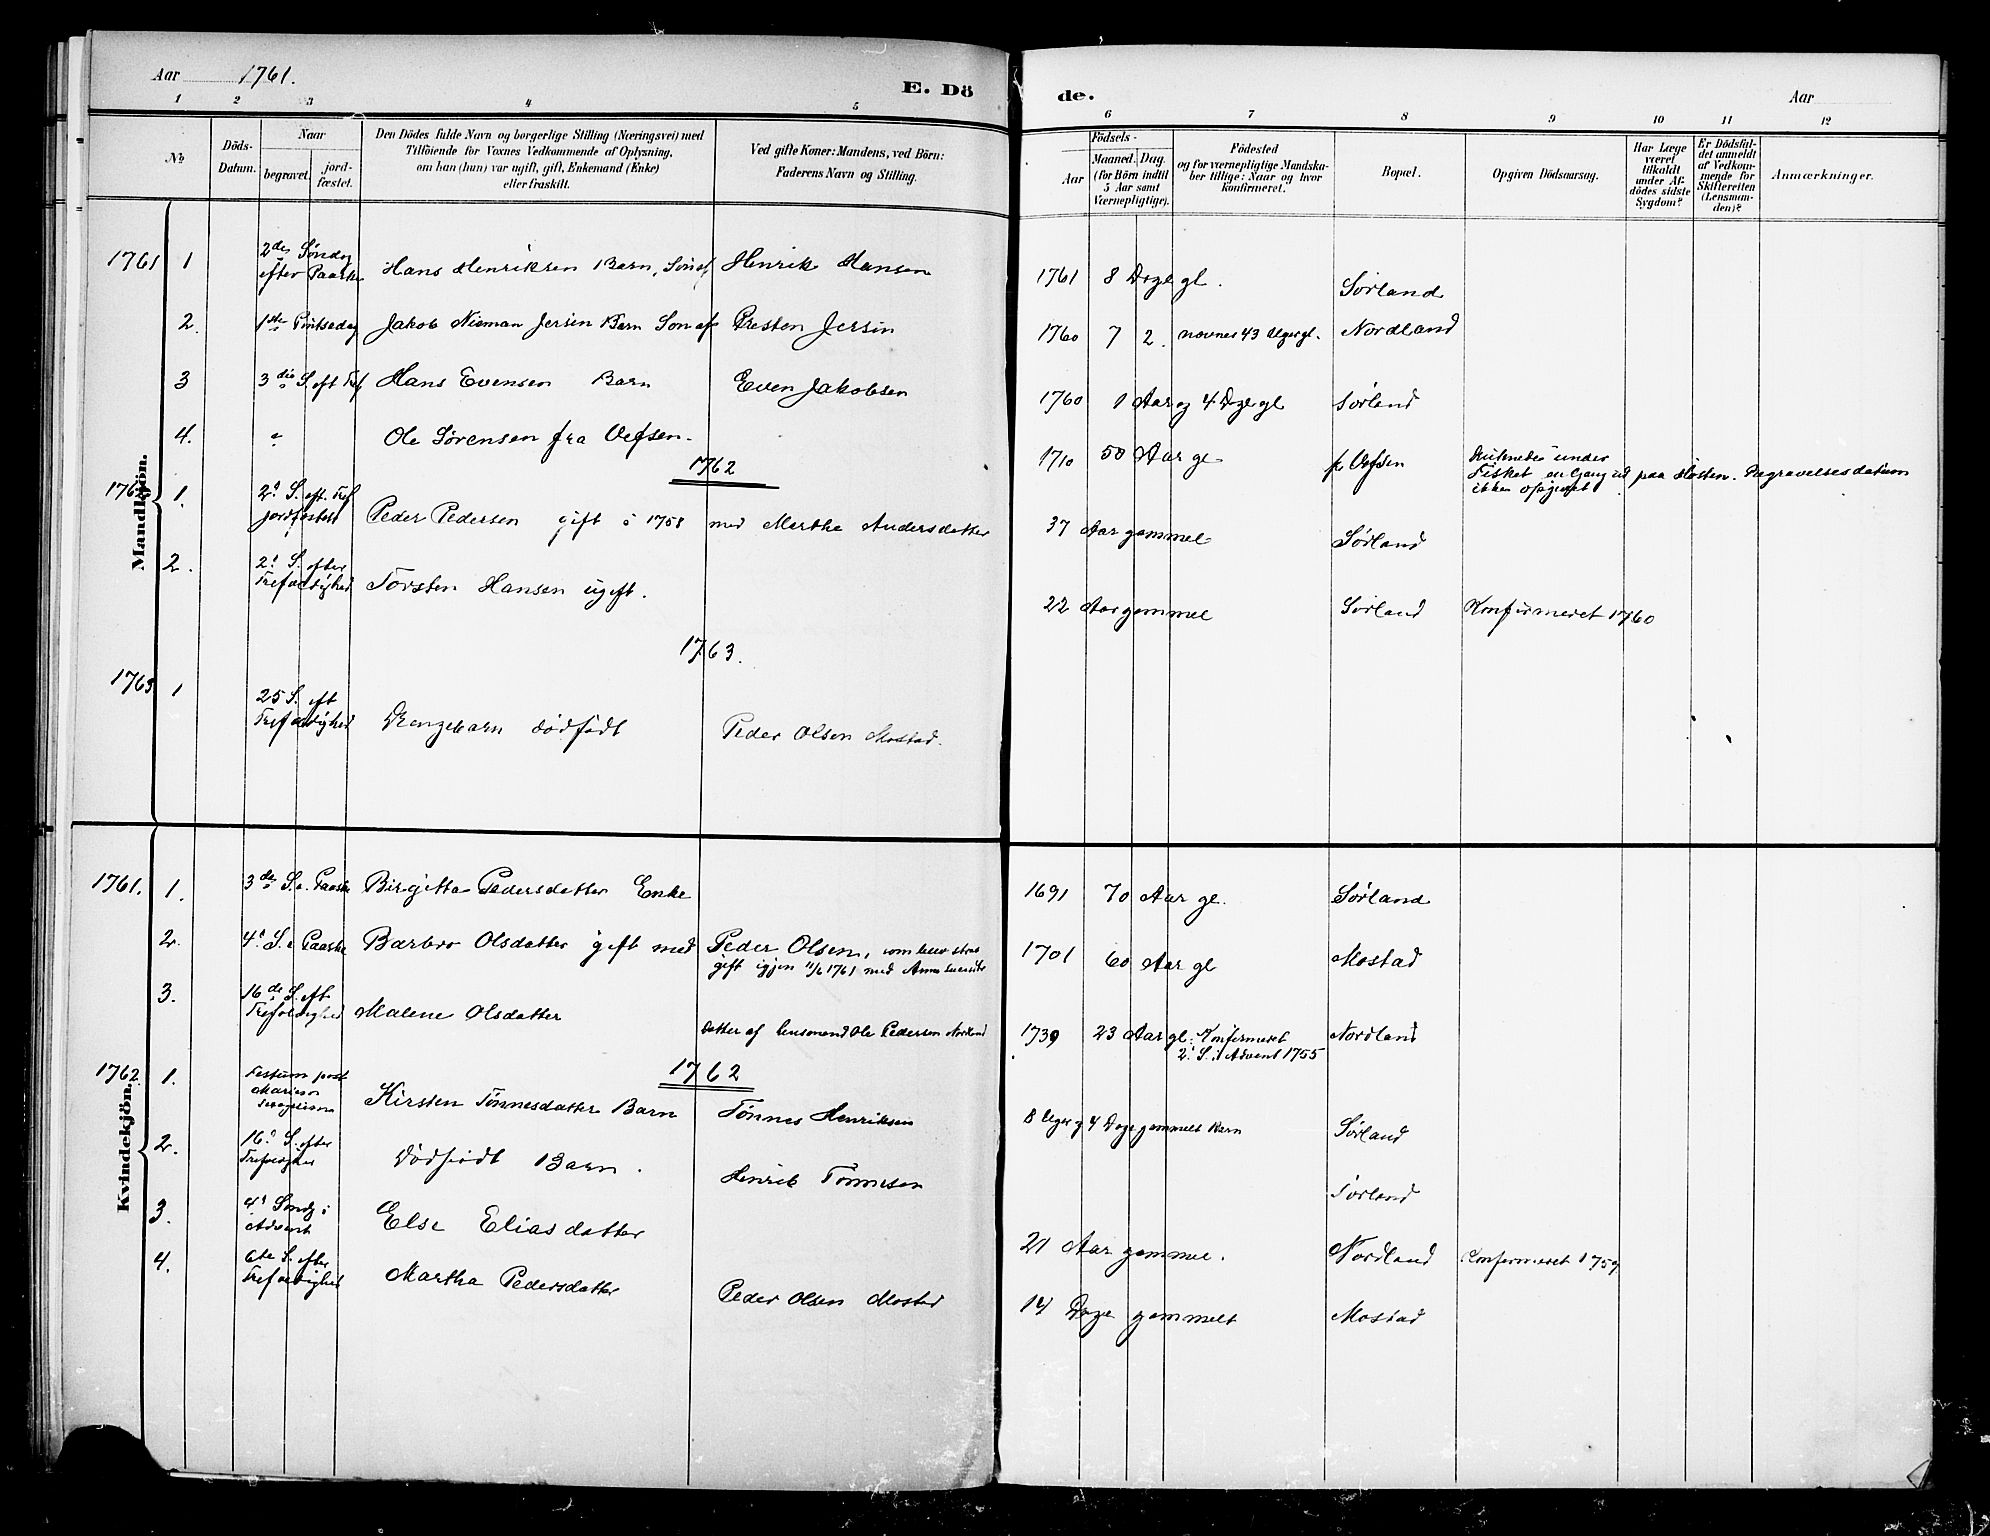 Aar 1761.
E. Dö
1 2 3 4 5
No
Döds-
Datum.
Naar
begravet.
jord-
fæstet.
Den Dödes fulde Navn og borgerlige Stilling (Næringsvei) med
Tilföiende for Voxnes Vedkommende af Oplysning,
om han (hun) var ugift, gift, Enkemand (Enke)
eller fraskilt.
Ved gifte Koner: Mandens, ved Börn:
Faderens Navn og Stilling.
Mandkjön.
1761 1 2den Søndag
efter Paaske Hans Henriksen Barn, Søn af Henrik Hansen
2. 1ste Pintsedag Jakob Nieman Jersin Barn Søn af Presten Jersin
3 3die S. eft Tref Hans Evensen Barn Even Jakobsen
4. " Ole Sørensen fra Vefsen.
1762
1762 1. 2d S. eft. Tref
jordfæstet Peder Pedersen gift i 1758 med Marthe Andersdatter
2. 2d S. efter
Trefoldighed Torsten Hansen ugift.
1763.
1763 1 25 S. eft
Trefoldighed Drengebarn dødfødt Peder Olsen Mostad.
Kvindekjön.
1761. 1. 3de S. e. Paaske Birgitta Pedersdatter Enke
2. 4d S. e Paaske Barbro Olsdatter gift med Peder Olsen, som blev strax
gift igjen 11/6 1761 med Anna
3. 16de S. eft
Trefoldighed Malene Olsdatter Datter af Lensmand Ole Pedersen Nordland
1762
1762. 1. Festum post
Kirsten Tønnesdatter Barn Tønnes Henriksen
2. 16d S. efter
Trefoldighed Dødfødt Barn. Henrik Tønnesen
3. 4d Søndg i
Advent Else Eliasdatter
4. 6te S. efter
Trefoldighed Martha Pedersdatter Peder Olsen Mostad
de.
Aar
6 7 8 9 10 11 12
Födsels-
Aar
Maaned. Dag.
(for Börn indtil
5 Aar samt
Værnepligtige).
Födested
og for værnepligtige Mandska-
ber tillige: Naar og hvor
konfirmeret.
Bopæl.
Opgiven Dödsaarsag.
Har Læge
været
tilkaldt
under Af-
dödes sidste
Sygdom?
Er Dödsfal-
det anmeldt
af Vedkom-
mende for
Skifteretten
(Lensman-
den)?
Anmærkninger.
1761 8 Dage gl. Sørland
1760 7 2. 43 Uger gl. Nordland
1760 1 Aar og 4 Dage gl Sørland
1710 50 Aar gl fr Vefsen Druknede under
Fisket en Gang ud paa Høsten. Begravelsesdatum
ikke opgivet
37 Aar gammel Sørland
22 Aar gammel Sørland Konfirmeret 1760
1691 70 Aar gl. Sørland
1701 60 Aar gl Mostad
1739 23 Aar gl. Konfirmeret Nordland
2. S. i Advent 1755
8 Uger og 4 Dage gammelt Barn Sørland
Sørland
21 Aar gammel. Nordland Konfirmeret 1759
14 Dage gammelt Mostad